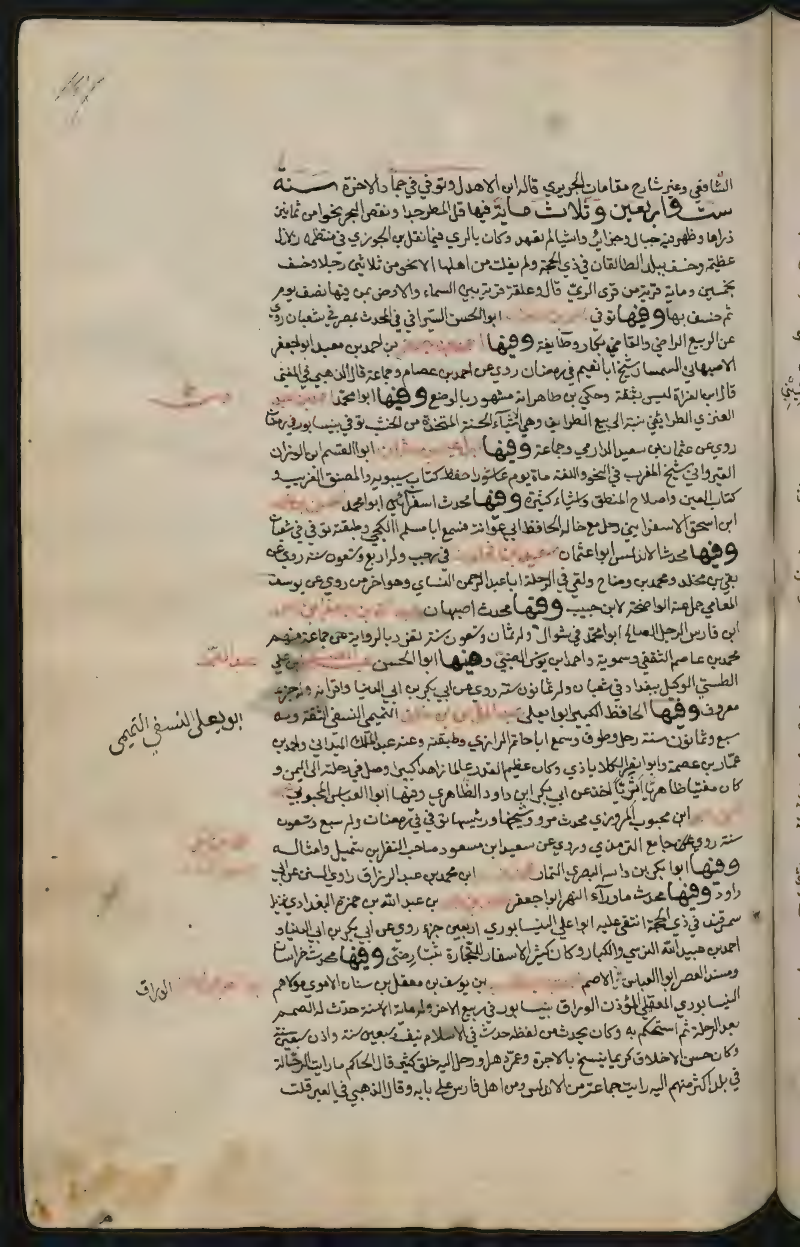 الشافعي وعنه شارح مقامات الحريري قاله ابن الاهدل وتوفي في جمادالاخرة سنة
ست واربعين وثلاث ماية فيها قل المطر جدا ونقص البحر نحوا من ثمانين
ذراعا وظهر فيه جبال وجزاير واشيا لم تعهد وكان بالري فيما نقل بن الجوزي في منتظمه زلازل
عظيمة وخسف ببلد الطالقان في ذي الحجة ولم يفلت من اهلها الا نحو من ثلاثين رجلا وخسف
بخمسين وماية قرية من قرى الري قال وعلقة قرية بين السماء والارض بمن فيها نصف يوم
ثم خسف بها وفيها توفي ابو الحسن السيرافي المحدث بمصر في شعبان روى
عن الربيع المرادي والقاضي بكار وطايفة وفيها بن احمد بن معبد ابو جعفر
الاصبهاني السمسار شيخ ابا نعيم في رمضان روى عن احمد بن عصام وجماعة قال الذهبي في المغني
قال ابن الفرات ليس بثقة وحكي بن طاهر انه مشهور بالوضع وفيها ابو محمد
العنزي الطرايفي نسبة الى بيع الطرايف وهي الاشياء الحسنة المتخذة من الخشب توفي بنيسابور في رمضان
روى عن عثمان بن سعيد الدارمي وجماعة وفيها ابو القسم ابن الوزان
القيرواني شيخ المغرب في النحو واللغة مات يوم عاشورا حفظ كتاب سيبويه والمصنف الغريب و
كتاب العين واصلاح المنطق واشياء كثيرة وفيها محدث اسفراين ابو محمد
ابن اسحق الاسفرايني رحل مع خاله الحافظ ابي عوانة فسمع ابا مسلم الكجي وطبقته توفي في شعبان
وفيها محدث الاندلس ابو عثمان سعيد بن في رجب وله اربع وتسعون سنة روى عن
بقي بن مخلد ومحمد بن وضاح ولقي في الرحلة ابا عبد الرحمن النساي وهو اخر من روى عن يوسف
المغامي حمل عنه الواضحة لابن حبيب وفيها محدث اصبهان
ابن فارس الرجل الصالح ابو محمد في شوال وله ثمان وتسعون سنة تفرد بالرواية عن جماعة منهم
محمد بن عاصم الثقفي وسموية واحمد ابن يونس الضبي وفيها ابو الحسن بن علي
الطستي الوكيل ببغداد في شعبان وله ثمانون سنة روى عن ابي بكر بن ابي الدنيا واقرانه وله جزء
معروف وفيها الحافظ الكبير ابو يعلى التميمي النسفي الثقة وله
سبع وثمانون سنة رحل وطوف وسمع ابا حاتم الرازي وطبقته وعنه عبد الملك الميداني واحمد بن
عمار بن عصمة وابو نصر الكلاباذي وكان عظيم القدر عالما زاهدا كبيرا وصل في رحلته الى اليمن و
كان مفتيا ظاهريا اثريا اخذ عن ابي بكر ابن داود الظاهري وفيها ابو العباس المحبوبي
ابن محبوب المروزي محدث مرو وشيخها ورئيسها توفي في رمضان وله سبع وتسعون
سنة روى جامع الترمذي وروى عن سعيد ابن مسعود صاحب النضر بن شميل وامثاله
وفيها ابو بكر بن داسه البصري التمار ابن محمد بن عبد الرزاق راوي السنن عن ابي
داود وفيها محدث ماورآء النهر ابو جعفر بن عبد الله بن حمزه البغدادي نزيل
سمرقند في ذي الحجة انتقى عليه ابو علي النيسابوري اربعين جزء روى عن ابي بكر بن ابي الدنيا و
احمد بن عبيد الله النرسي والكبار وكان كثير الاسفار للتجارة ثبتا رضي وفيها محدث خراسان
ومسند العصر ابو العباس الاصم بن يوسف بن معقل بن سنان الاموي مولاهم
النيسابوري المعقلي المؤذن الوراق بنيسابور في ربيع الاخر وله ماية الا سنة حدث له الصمم
بعد الرحلة ثم استحكم به وكان يحدث من لفظه حدث في الاسلام نيف وسبعين سنة واذن سبعين سنة
وكان حسن الاخلاق كريما ينسخ بالاجرة وعمر دهرا ورحل اليه خلق كثير قال الحاكم مارايت الرحالة
في بلد اكثر منهم اليه رايت جماعة من الاندلس ومن اهل فارس على بابه وقال الذهبي في العبر قلت
ابو يعلى النسفي التميمي
الوراق